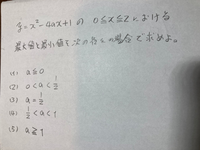 y=x²-2ax+1 の 0≦x≦2 における
最大値と最小値を、次の各々の場合で求めよ。
(1) a≦0
(2) 0<a<1/2
(3) a=1/2
(4) 1/2<a<1
(5) a≧1